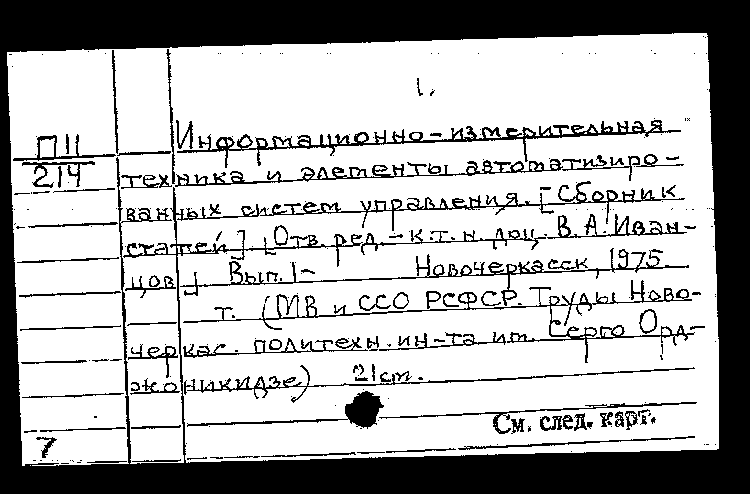 1.
П11
214
Информационно-измерительная
техника и элементы автоматизиро-
ванных систем управления. [Сборник
статей]. [Отв. ред. - к.т.н. доц. В.А. Иван-
цов] Вып. 1- Новочеркасск, 1975
т. (МВ и ССО РСФСР. Труды Ново-
черкас. политехн. ин-та им. Серго Орд-
жоникидзе) 21 см.
См. след. карт.
7